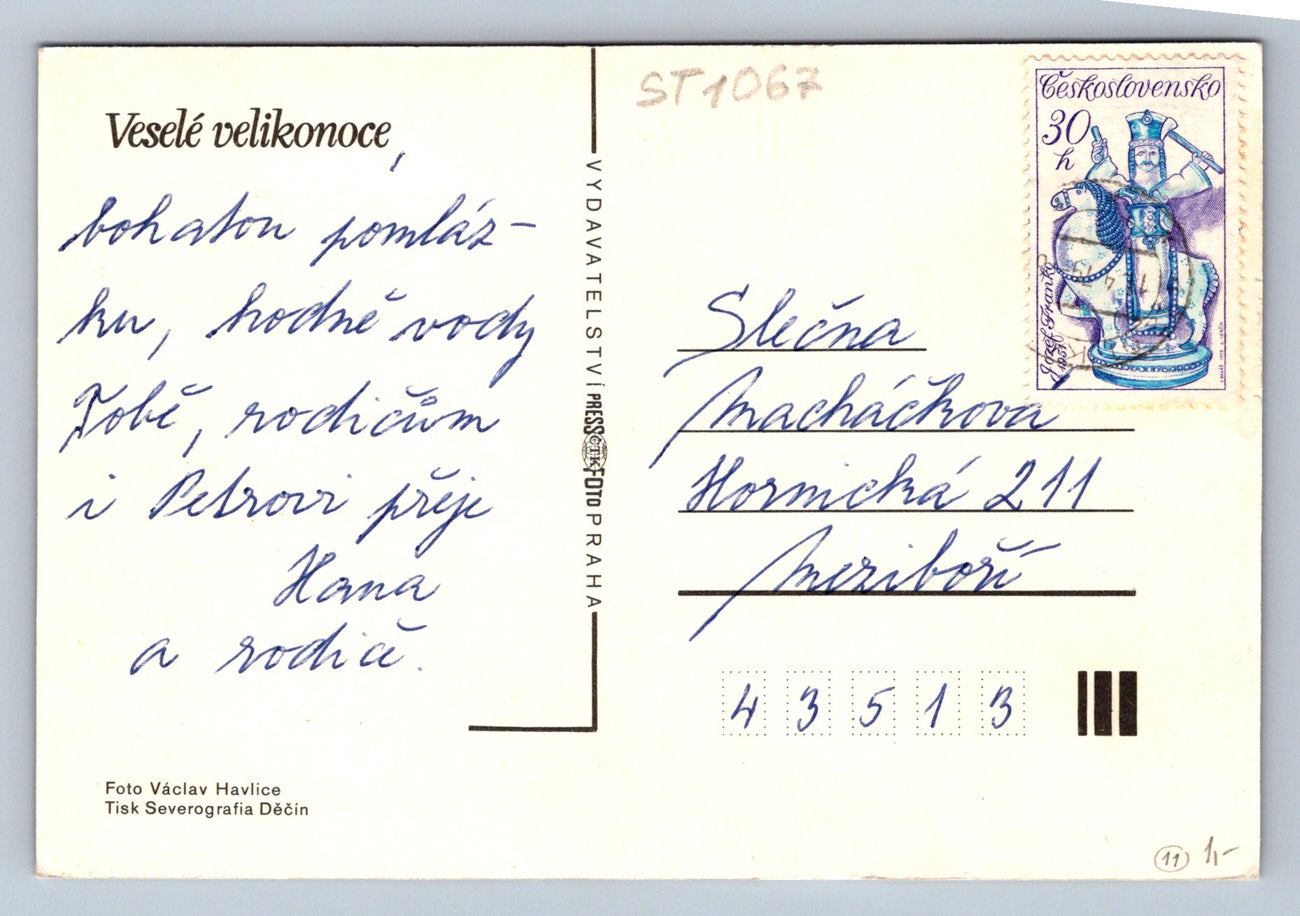 Veselé velikonoce,
bohatou pomláz-
ku, hodně vody
Tobě, rodičům
i Petrovi přeje
Hana
a rodiče.
Foto Václav Havlice
Tisk Severografia Děčín
VYDAVATELSTVÍ PRESSFOTO PRAHA
ČTK
ST1067
Československo
30
h
Jozef Franko
1957
Slečna
Macháčkova
Hornická 211
Meziboří
43513
11 1,-